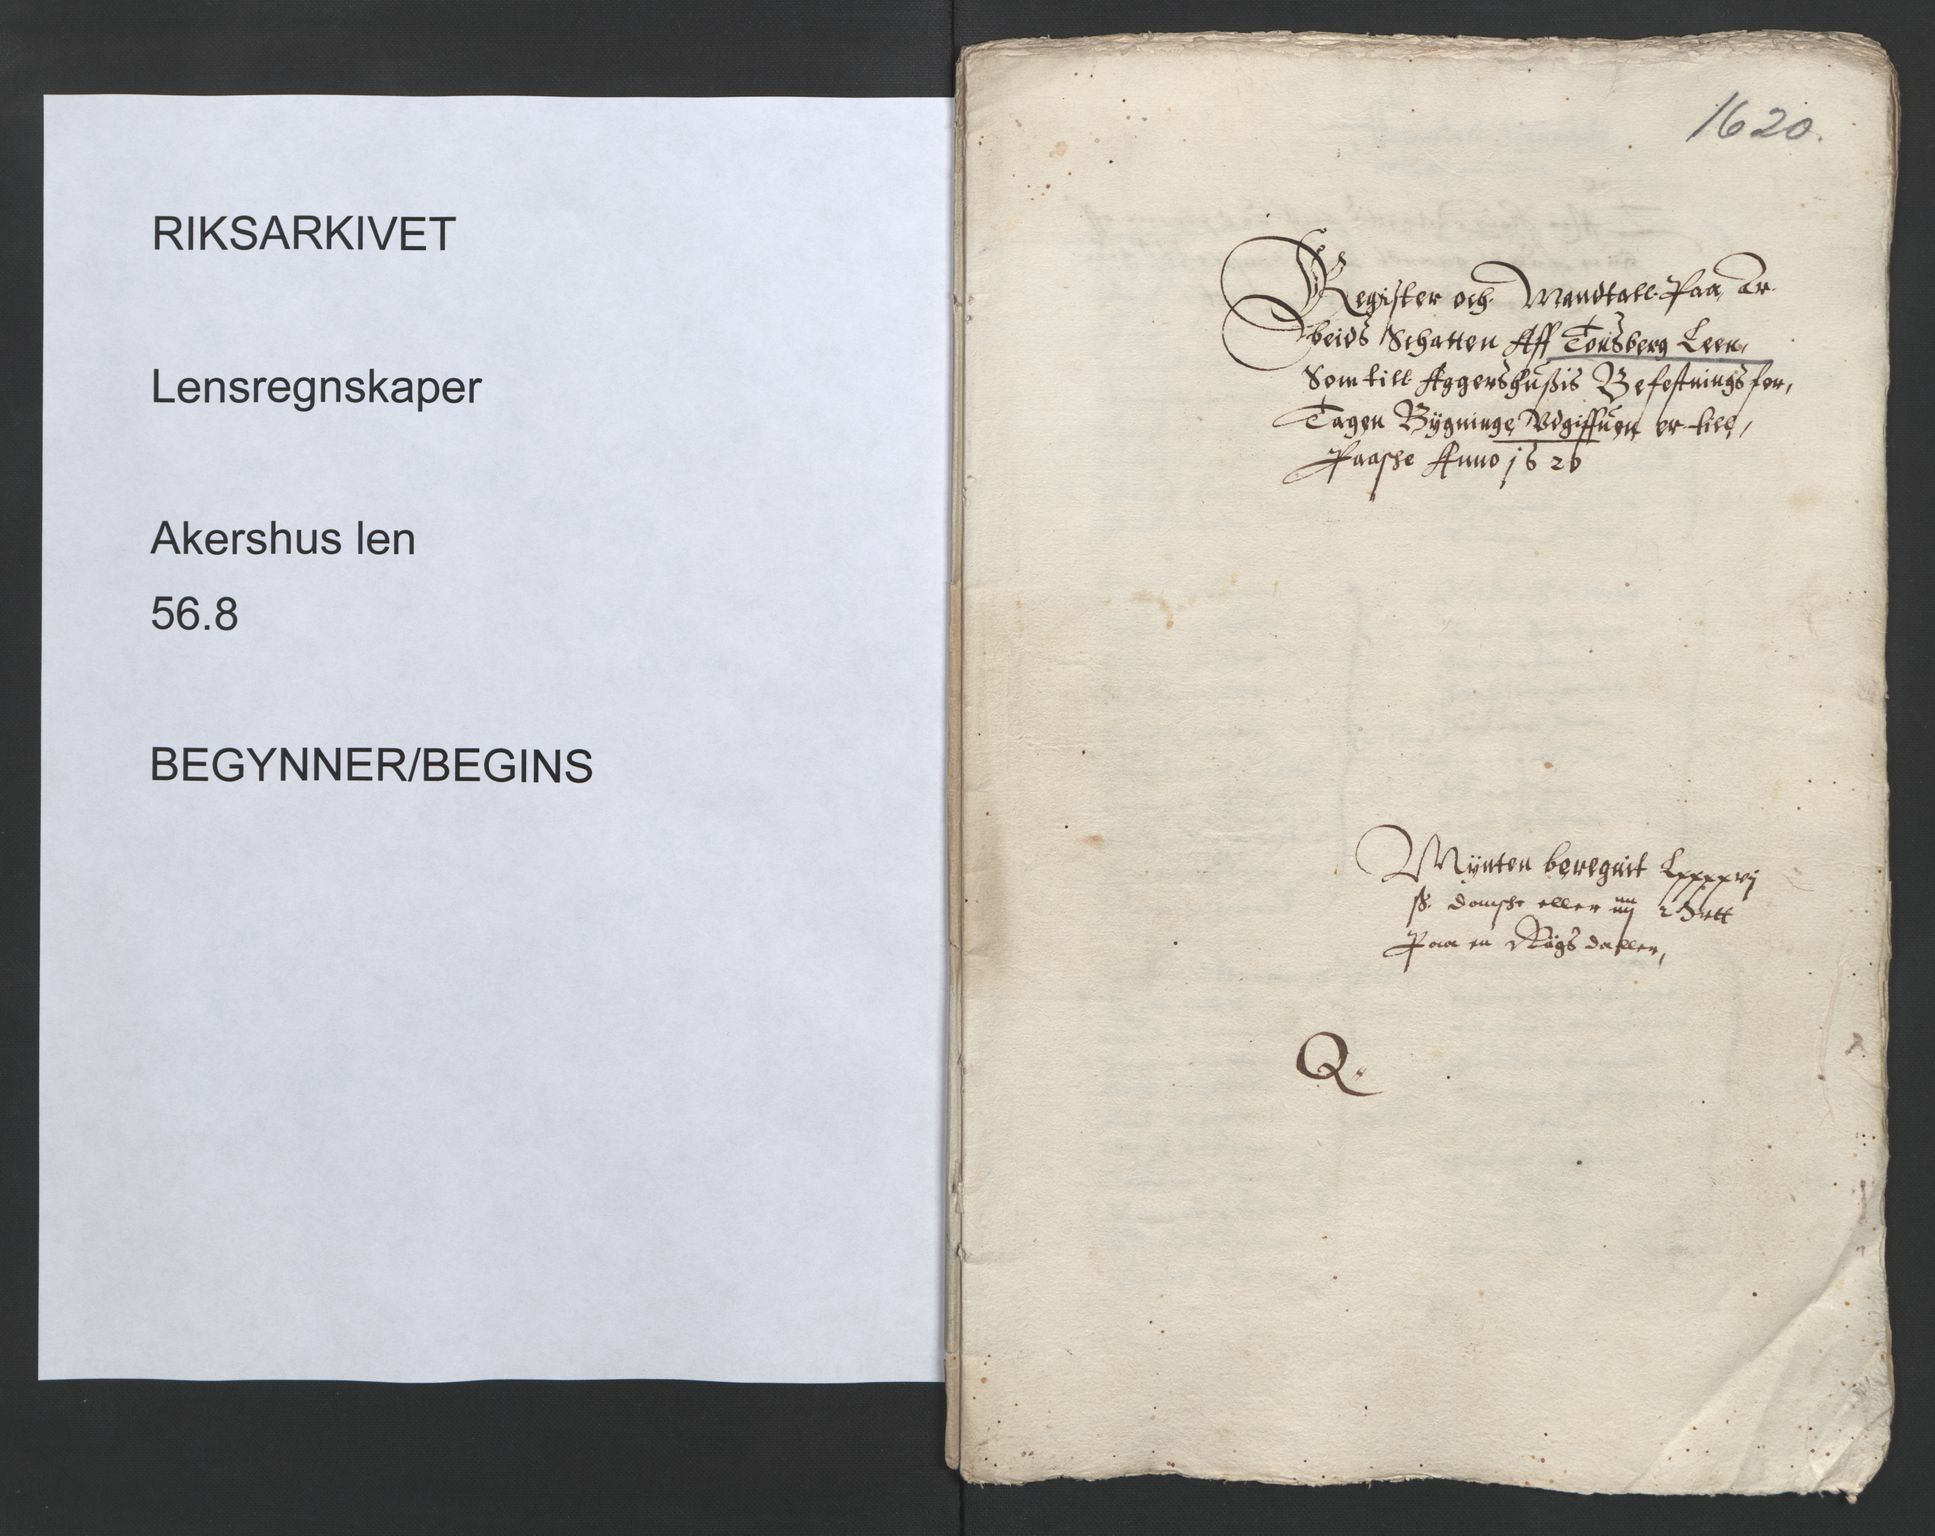 RIKSARKIVET
Lensregnskaper
Akershus len
56.8
BEGYNNER/BEGINS
1620.
Register och Mandtall Paa Ar
beids Schatten Aff Tonsberg Leen,
Som till Aggershußis Befestnings for,
Tagen Bÿgninge Vdgiffuen er till,
Paasche Anno 1620
Mÿnten beregnit Lxxxxvj
ß. Dansche eller
Paa en Rigs daller,
Q.